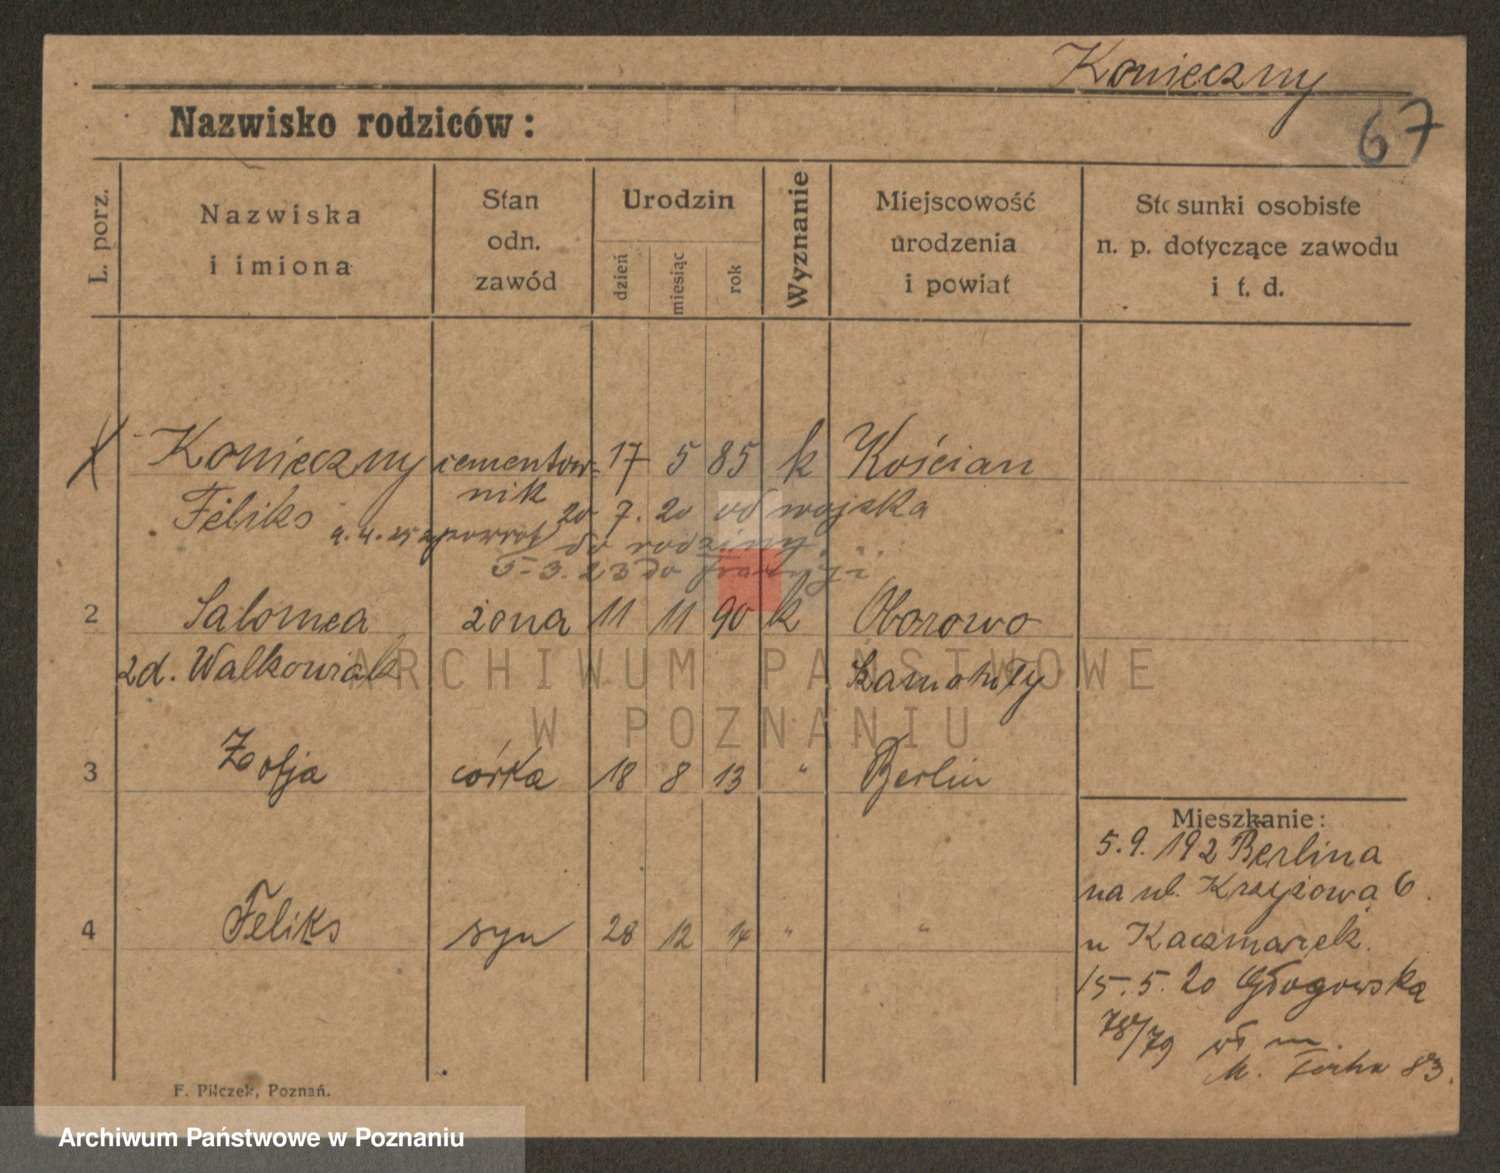 Konieczny
67
Nazwisko rodziców:
L. porz.
Nazwiska
i imiona
Stan
odn.
zawód
Urodzin
dzień
miesiąc
rok
Wyznanie
Miejscowość
urodzenia
i powiat
Stosunki osobiste
n. p. dotyczące zawodu
i t. d.
Konieczny cementow- 17 5 85 k Kościan
nik
Feliks 20 7. 20 od wojska
9. 4. 25 z powrot do rodziny.
5-3.23 do
2 Salomea żona 11 11 90 k Oborowo
zd. Walkowiak Szamotuły
3 Zofja córka 18 8 13 " Berlin
4 Feliks syn 28 12 14 " "
Mieszkanie:
5.9.192 Berlina
na ul. Krzyżowa 6.
u Kaczmarek.
15.5.20 Głogowska
78/79 wł m.
M. 83.
F. Pilczek, Poznań.
ARCHIWUM PAŃSTWOWE
W POZNANIU
Archiwum Państwowe w Poznaniu